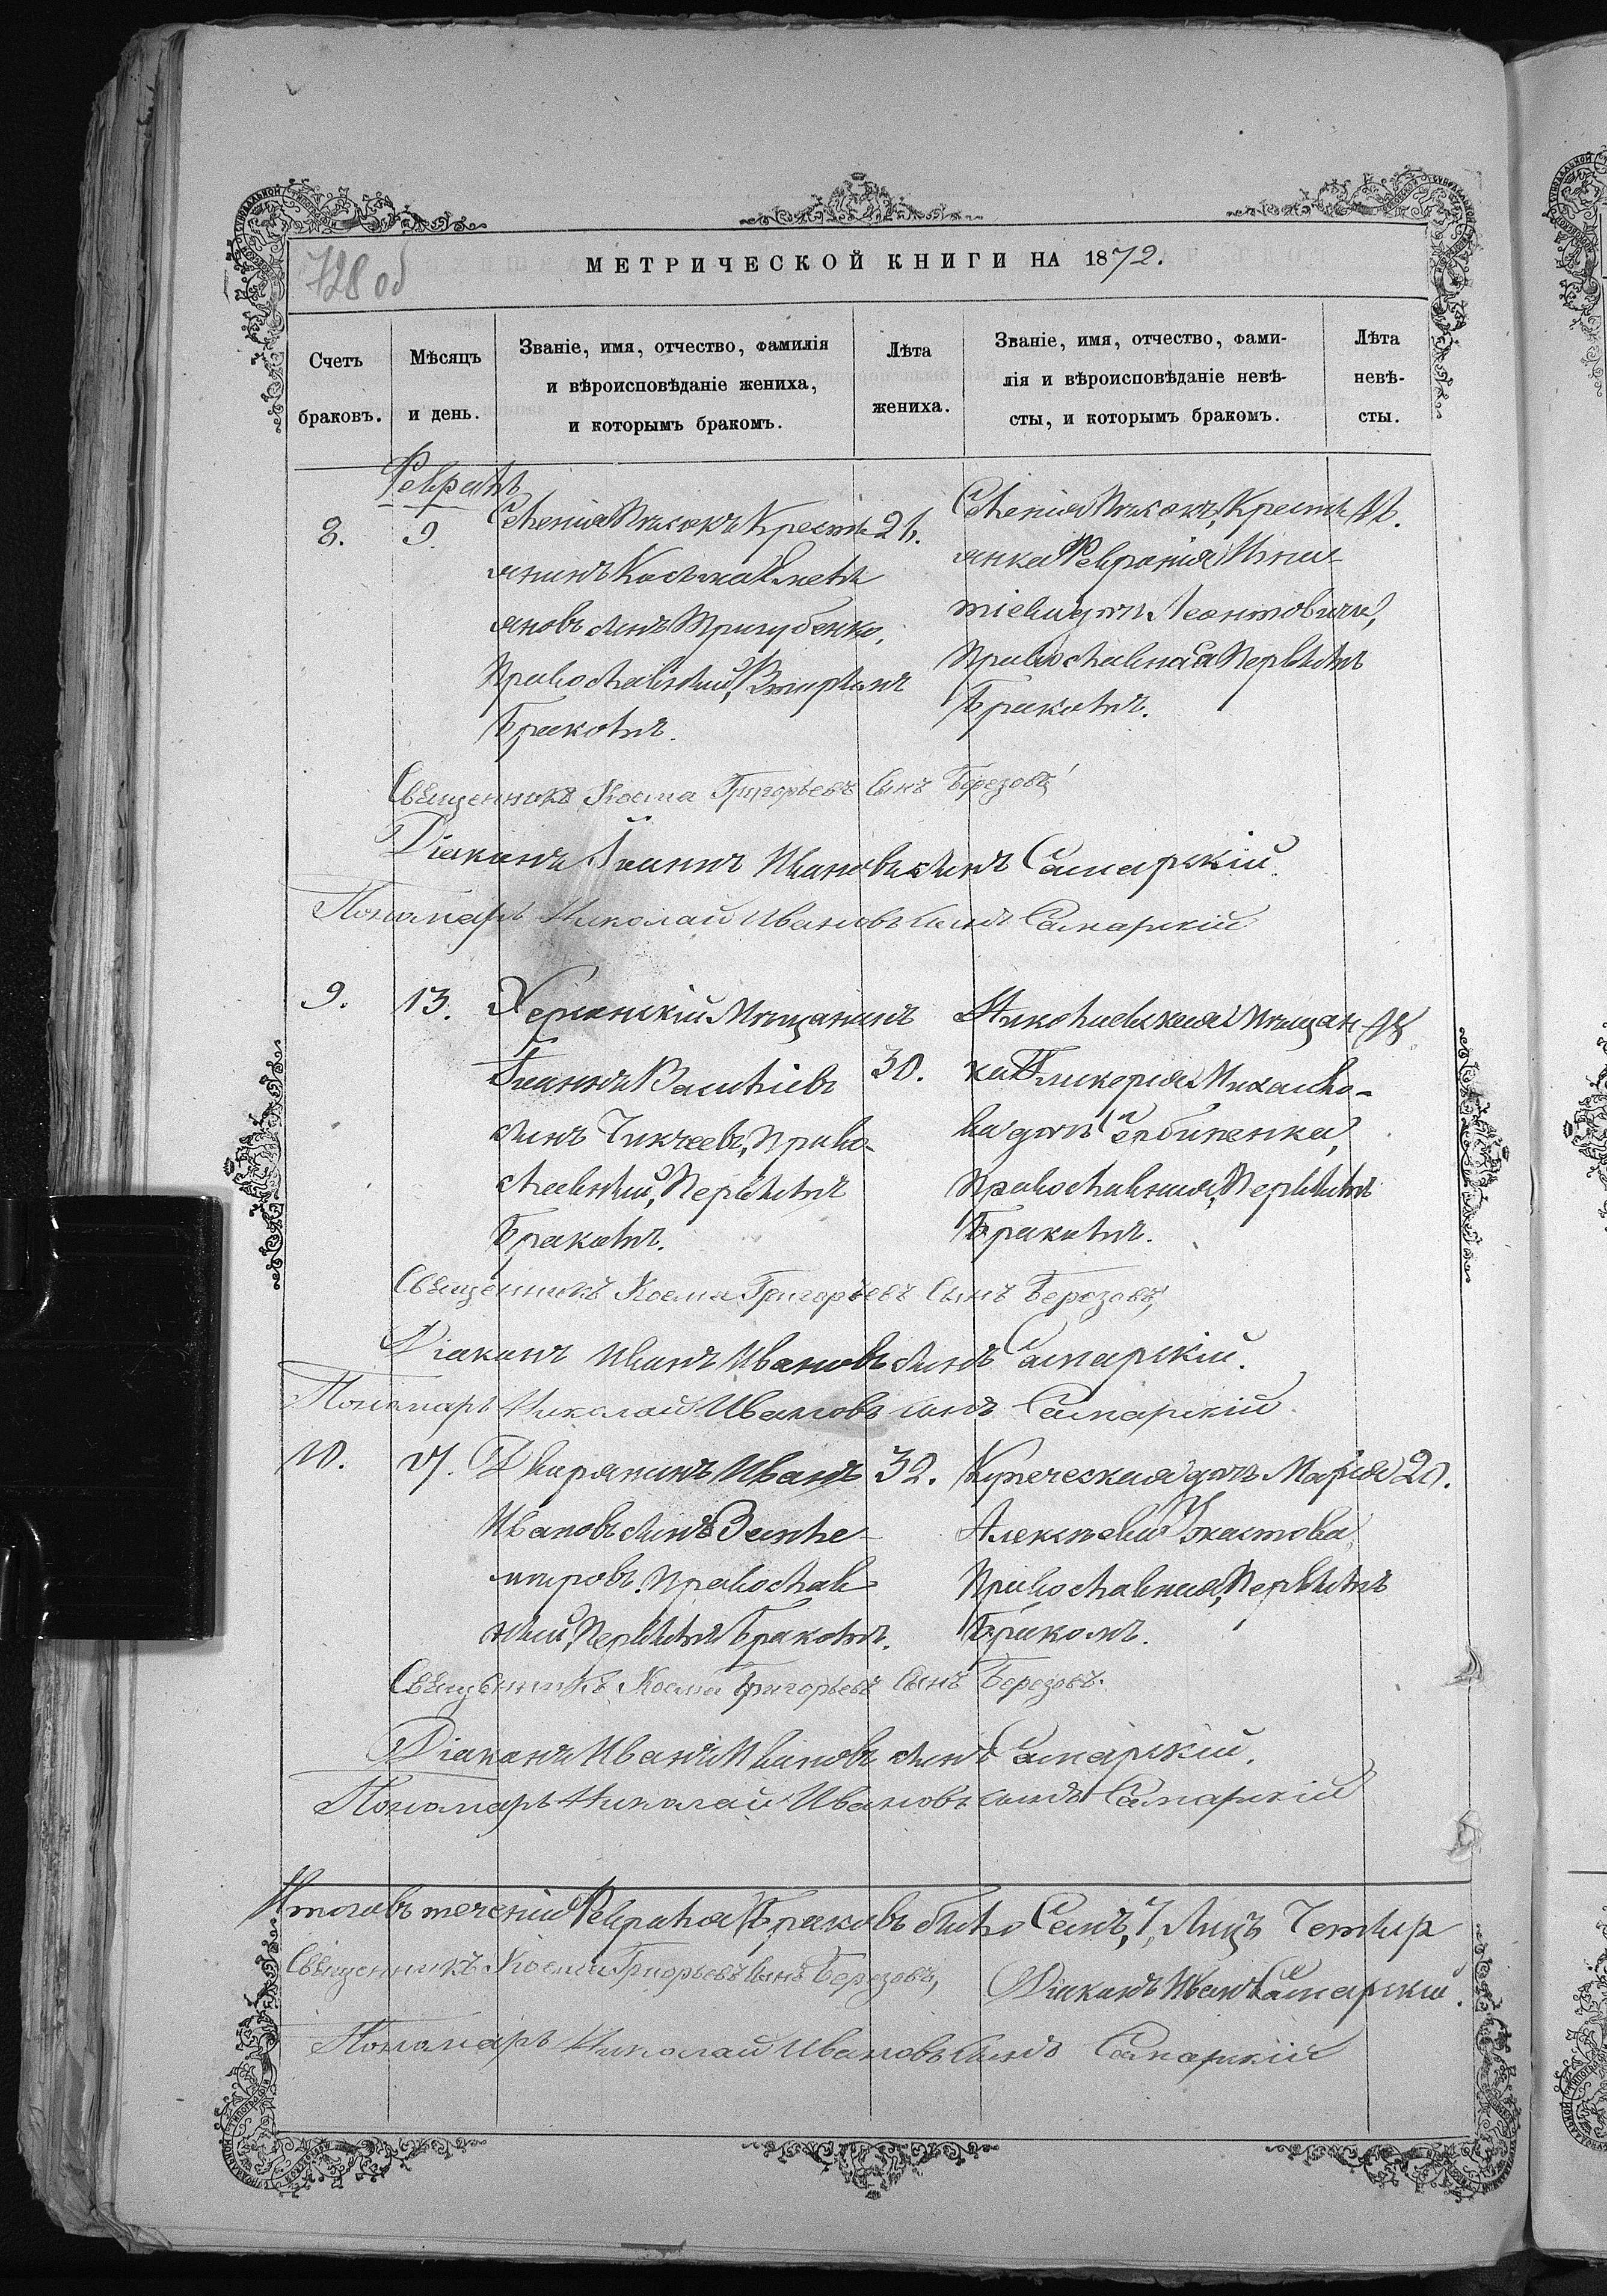 728 об
МЕТРИЧЕСКОЙ КНИГИ НА 1872.
Счетъ браковъ.
Мѣсяцъ и день.
Званіе, имя, отчество, фамилія
и вѣроисповѣданіе жениха,
и которымъ бракомъ.
Лѣта жениха.
Званіе, имя, отчество, фами-
лія и вѣроисповѣданіе невѣ-
сты, и которымъ бракомъ.
Лѣта невѣ-
сты.
Февраль
8. 9.
Селенія Кресть
янинъ Косьма Емель
яновъ сынъ Тригубенко,
Православный, Вторымъ
Бракомъ.
Селенія Кресть
янка Февронія Игна
тіева дочь Леонтовича,
Православная Первымъ
Бракомъ.
Священникъ Косма Григорьевъ Сынъ Березовъ
Діаконъ Іоаннъ Ивановъ сынъ Самарскій.
Пономарь Николай Ивановъ сынъ Самарскій
9. 13.
Херсонскій Мѣщанинъ
Іоаннъ Василіевъ
сынъ Чикчеевъ, Право-
славный, Первымъ
Бракомъ.
30.
Николаевская мѣщан
ка Гликерія Михайло-
ва дочь
Православная, Первымъ
Бракомъ.
Священникъ Косма Григорьевъ Сынъ Березовъ,
Діаконъ Иванъ Ивановъ сынъ Самарскій.
Пономарь Николай Ивановъ сынъ Самарскій.
10.
Дворянинъ Иванъ
Ивановъ сынъ
Православ
ный, Первымъ Бракомъ.
32.
Купеческая дочь Марія
Алексѣева
Православная, Первымъ
Бракомъ.
20.
Священникъ Косма Григорьевъ Сынъ Березовъ.
Діаконъ Иванъ Ивановъ сынъ Самарскій.
Пономарь Николай Ивановъ сынъ Самарскій
Итого въ теченіи Февраля Браковъ было Семь, 7, Лицъ Четыр
Священникъ Косма Григорьевъ Сынъ Березовъ,
Діаконъ Иванъ Самарскій.
Пономарь Николай Ивановъ Сынъ Самарскій